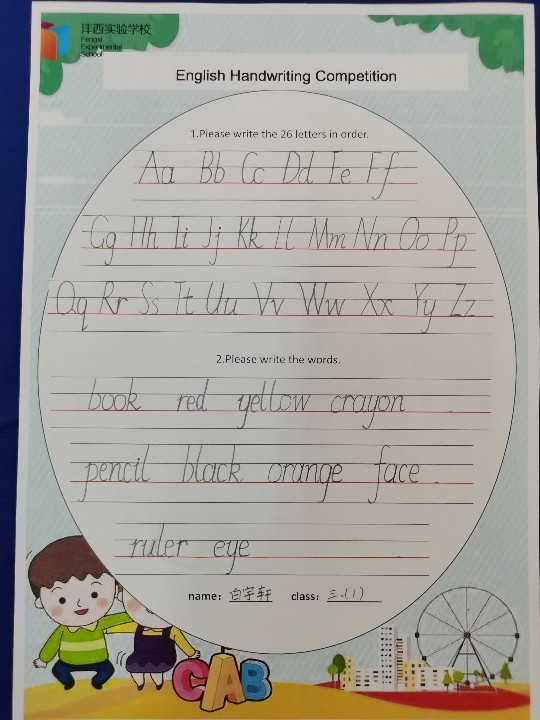 沣西实验学校
Fengxi
Experimental
School
English Handwriting Competition
1.Please write the 26 letters in order.
Aa Bb Cc Dd Ee Ff
Gg Hh Ii Jj Kk Ll Mm Nn Oo Pp
Qq Rr Ss Tt Uu Vv Ww Xx Yy Zz
2.Please write the words.
book red yellow crayon
pencil black orange face
ruler eye
name: 白宇轩 class: 三.(1)
CAB